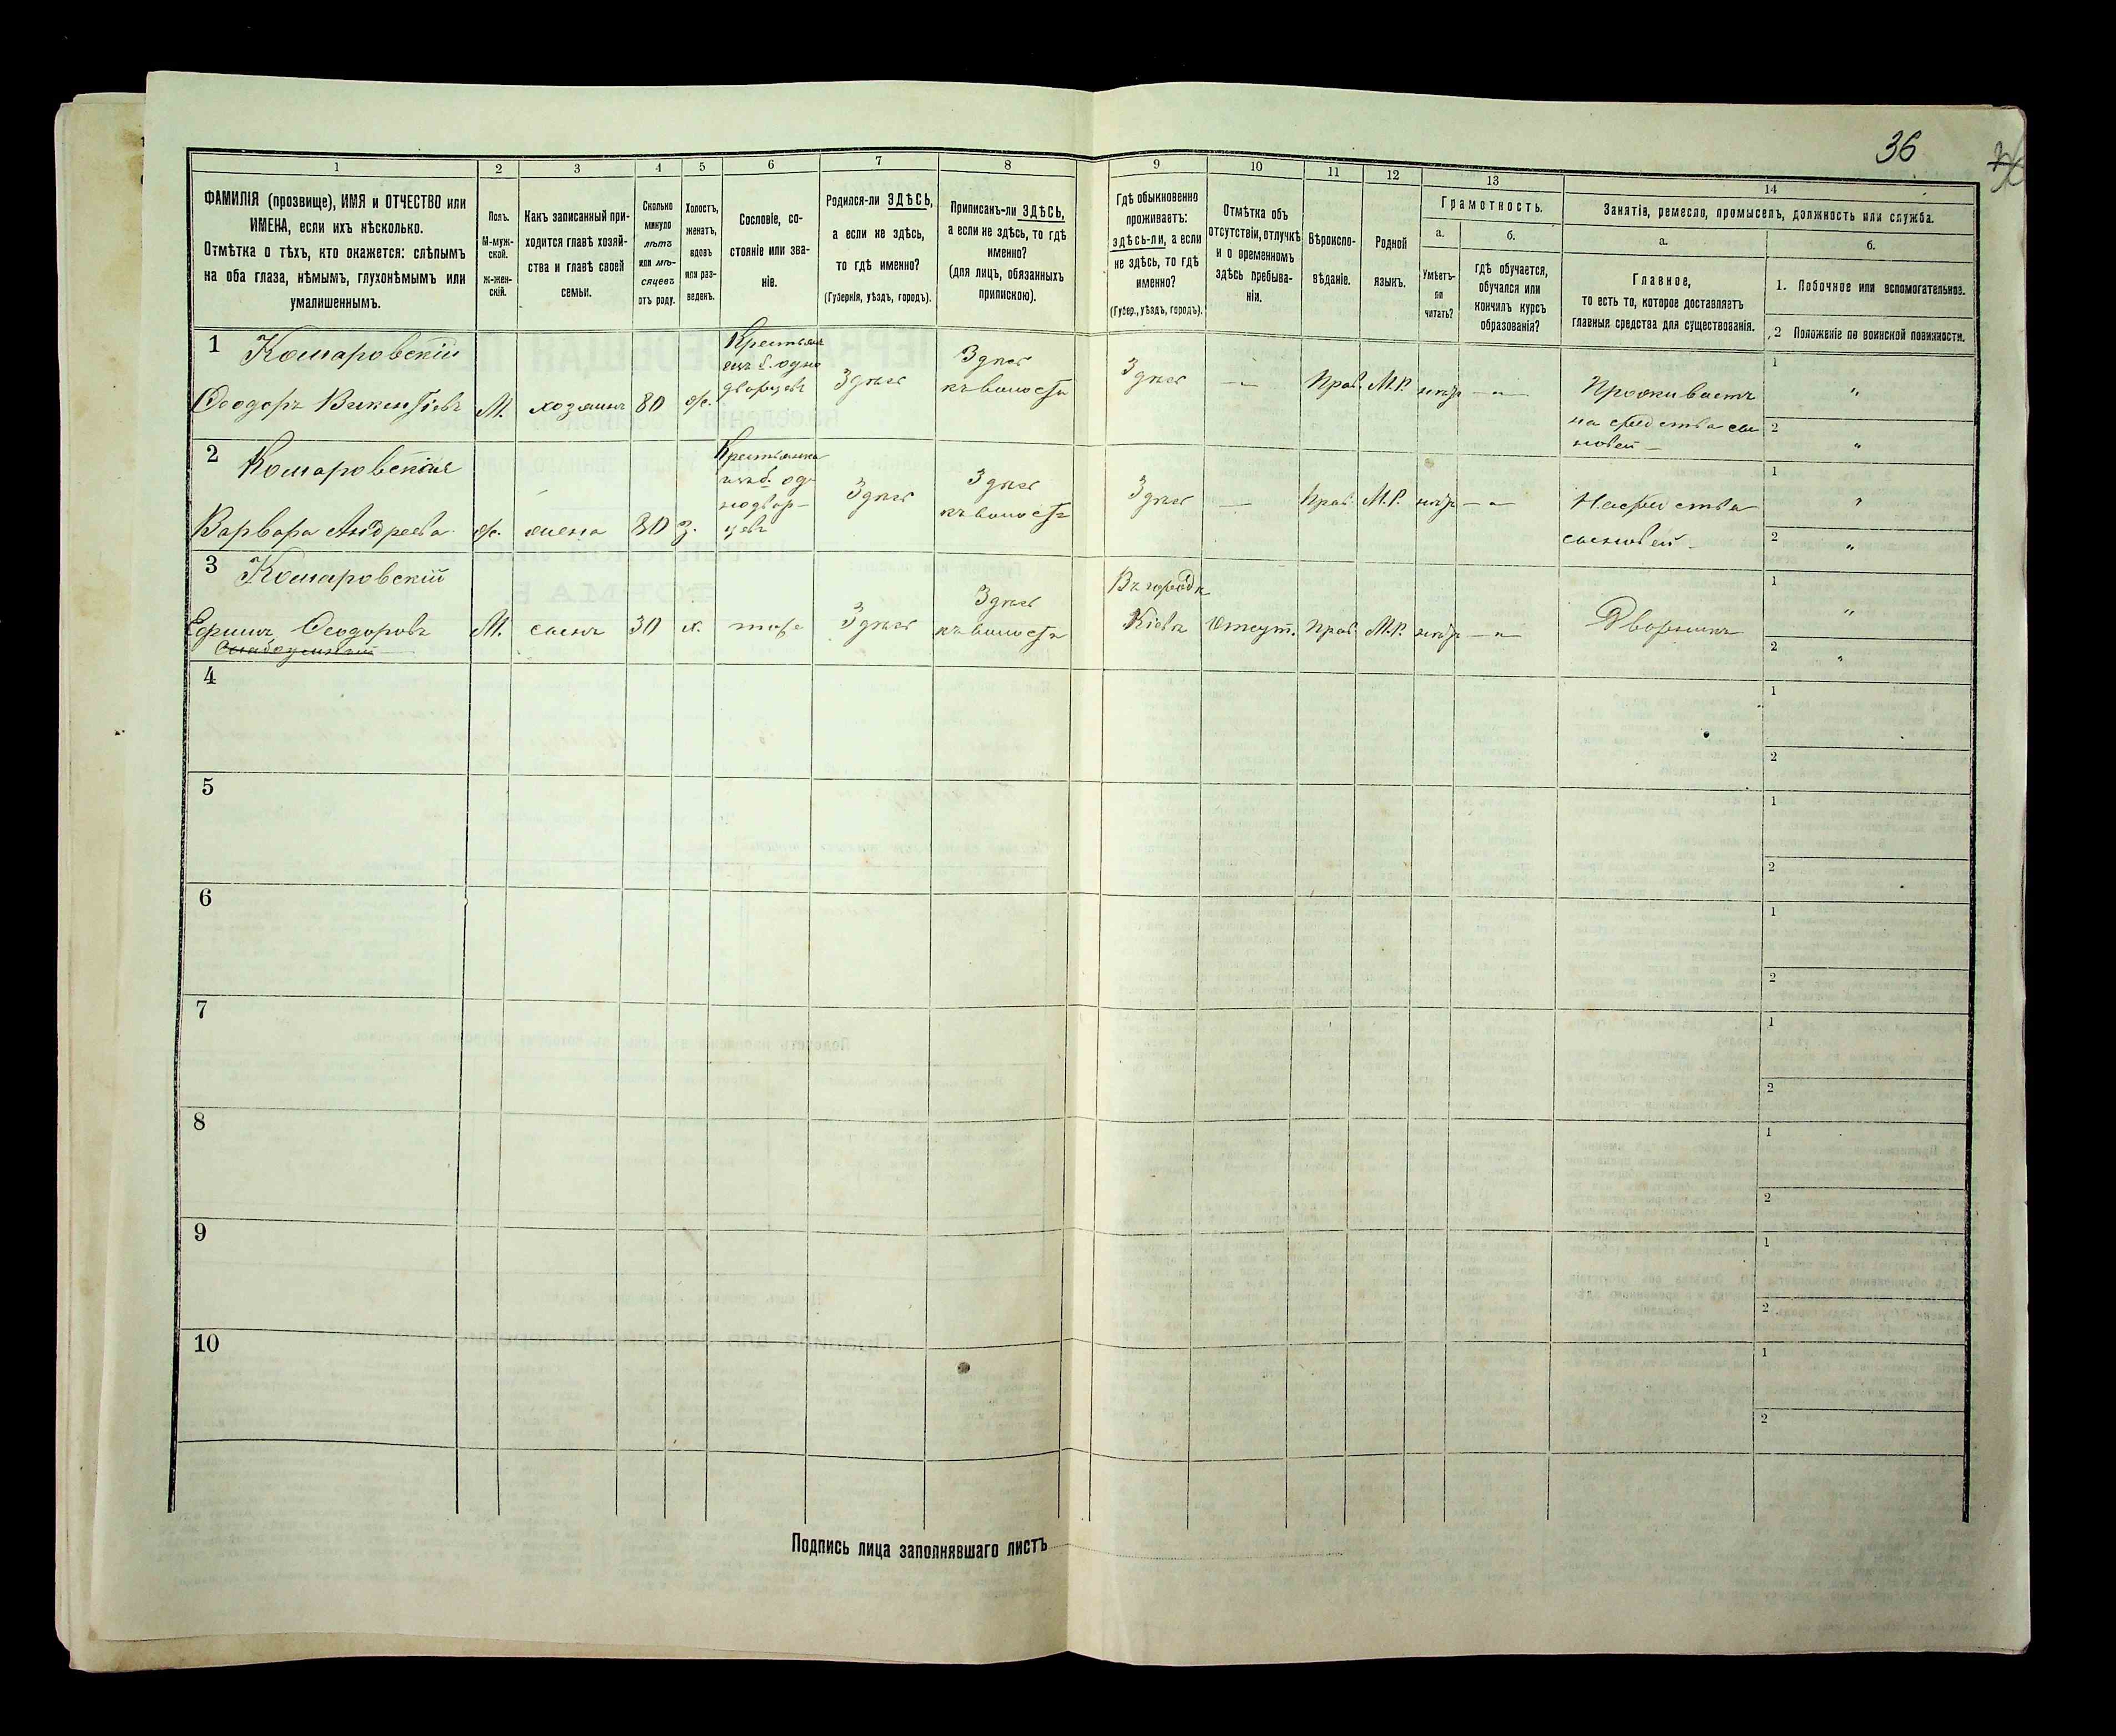 36
1 2 3 4 5 6 7 8 9 10 11 12 13 14
ФАМИЛІЯ (прозвище), ИМЯ и ОТЧЕСТВО или
ИМЕНА, если ихъ нѣсколько.
Отмѣтка о тѣхъ, кто окажется: слѣпымъ
на оба глаза, нѣмымъ, глухонѣмымъ или
умалишеннымъ.
Полъ.
М-муж-
ской.
Ж-жен-
скій.
Какъ записанный при-
ходится главѣ хозяй-
ства и главѣ своей
семьи.
Сколько
минуло
лѣтъ
или мѣ-
сяцевъ
отъ роду.
Холостъ,
женатъ,
вдовъ
или раз-
веденъ.
Сословіе, со-
стояніе или зва-
ніе.
Родился-ли ЗДѢСЬ,
а если не здѣсь,
то гдѣ именно?
(Губернія, уѣздъ, городъ).
Приписанъ-ли ЗДѢСЬ,
а если не здѣсь, то гдѣ
именно?
(для лицъ, обязанныхъ
припискою).
Гдѣ обыкновенно
проживаетъ:
здѣсь-ли, а если
не здѣсь, то гдѣ
именно?
(Губер., уѣздъ, городъ).
Отмѣтка объ
отсутствіи, отлучкѣ
и о временномъ
здѣсь пребыва-
ніи.
Вѣроиспо-
вѣданіе.
Родной
языкъ.
Грамотность.
а.
Умѣетъ-
ли
читать?
б.
гдѣ обучается,
обучался или
кончилъ курсъ
образованія?
Занятіе, ремесло, промыселъ, должность или служба.
а.
Главное,
то есть то, которое доставляетъ
главныя средства для существованія.
б.
1. Побочное или вспомогательное.
2 Положеніе по воинской повинности.
1 Комаровскій
Ѳеодоръ Викентіевъ М. хозяинъ 80 ж.
Крестьян
инъ б. одно
дворцевъ
Здѣсь
Здѣсь
къ волости
Здѣсь — Прав. М.Р. нѣтъ —"—
Проживаетъ
на средства сы
новей —
1 "
2 "
2 Комаровская
Варвара Андреева ж. жена 80 з.
Крестьянка
изъ б. од
нодвор-
цевъ
Здѣсь
Здѣсь
къ волости
Здѣсь — Прав. М.Р. нѣтъ —"—
На средства
сыновей —
1 "
2 "
3 Комаровскій
Ефимъ Ѳеодоровъ М. сынъ 30 х. тоже Здѣсь
Здѣсь
къ волости
Въ городѣ
Кіевѣ Отсут. Прав. М.Р. нѣтъ —"— Дворникъ
1 "
2 "
4
1
2
5
1
2
6
1
2
7
1
2
8
1
2
9
1
2
10
1
2
Подпись лица заполнявшаго листъ